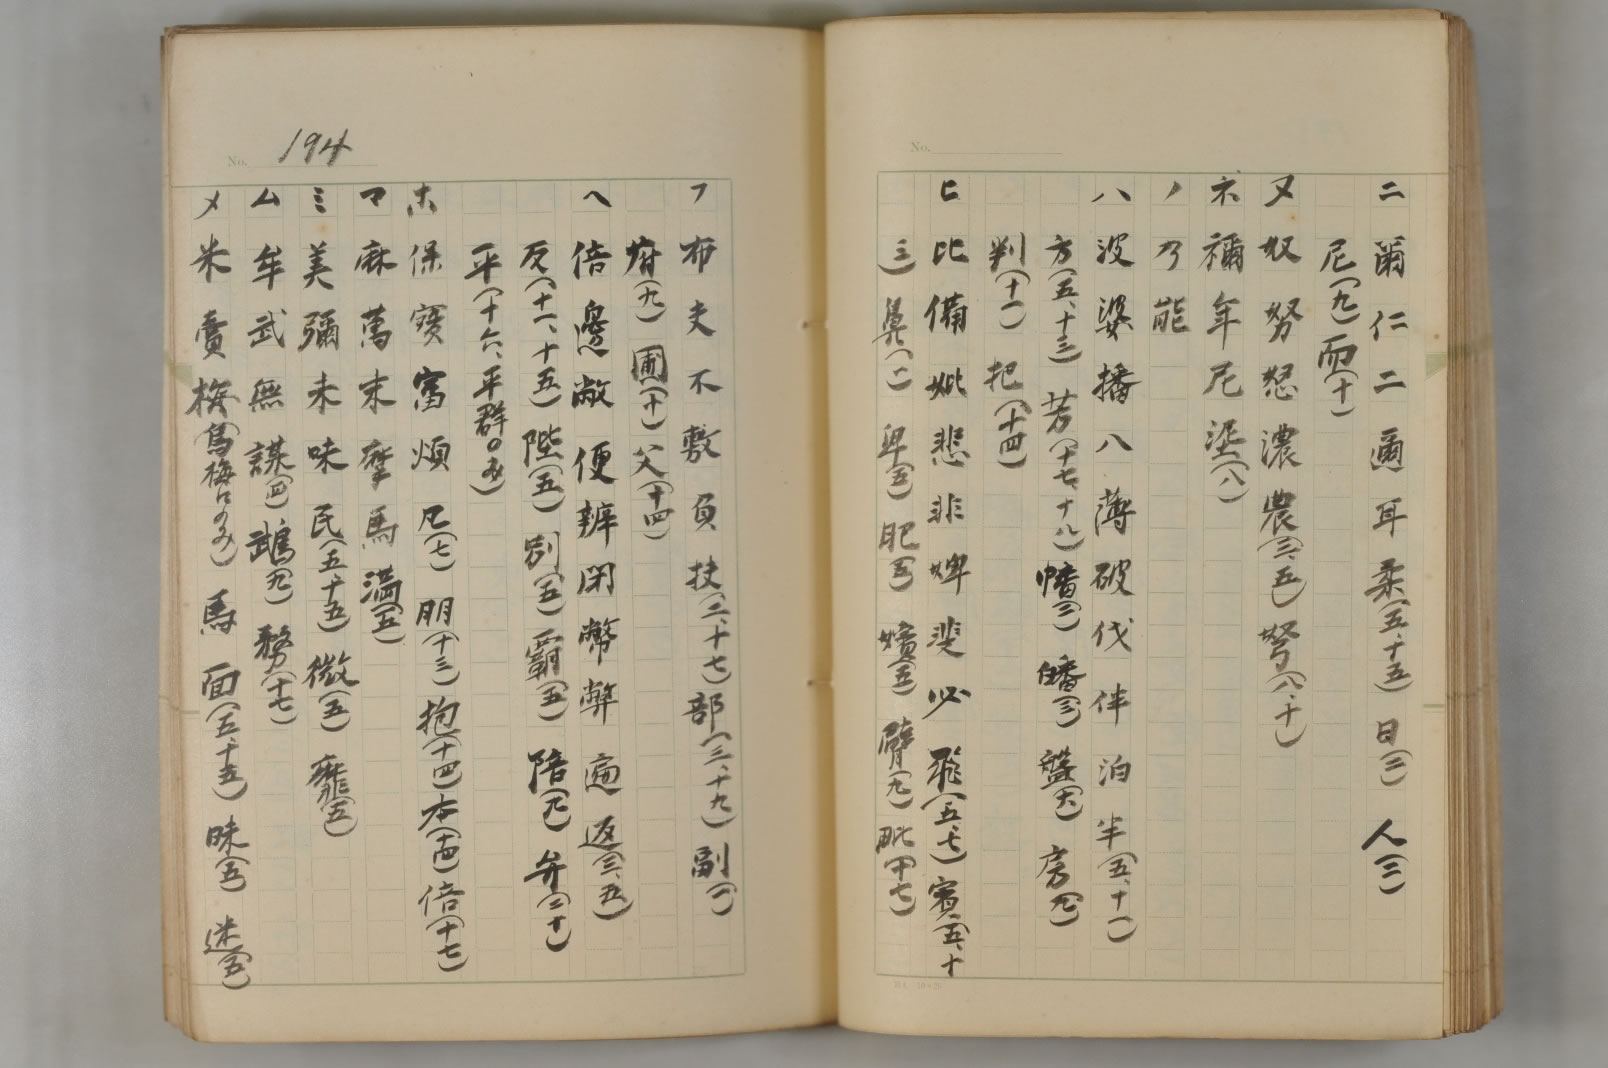 No.
ニ 爾 仁 二 邇 耳 柔(五、十五) 日(二) 人(三)
尼(九) 而(十)
ヌ 奴 努 怒 濃 農(三、五) 弩(八、十)
ネ 禰 年 尼 涅(八)
ノ 乃 能
ハ 波 婆 播 八 薄 破 伐 伴 泊 半(五、十一)
方(五、十三) 芳(十七、十八) 幡(二) 皤(三) 盤(六) 房(九)
判(十一) 把(十四)
ヒ 比 備 妣 悲 非 婢 斐 必 飛(五、七) 賓(五、十
三) 鼻(一) 卑(五) 肥(五) 嬪(五) 臂(九) 毗(十七)
No. 194
フ 布 夫 不 敷 負 扶(二、十七) 部(三、十九) 副(一)
府(九) 圃(十) 父(十四)
ヘ 倍 邊 敝 便 辨 閇 幣 弊 遍 返(三、五)
反(十一、十五) 陛(五) 別(五) 覇(五) 陪(九) 弁(二十)
平(十六、平群のみ)
ホ 保 寶 富 煩 凡(七) 朋(十三) 抱(十四) 本(十四) 倍(十七)
マ 麻 萬 末 摩 馬 満(五)
ミ 美 彌 未 味 民(五、十五) 微(五) 靡(五)
ム 牟 武 無 謀(四) 鵡(九) 務(十七)
メ 米 賣 梅(烏梅ロのみ) 馬 面(五、十五) 昧(五) 迷(五)